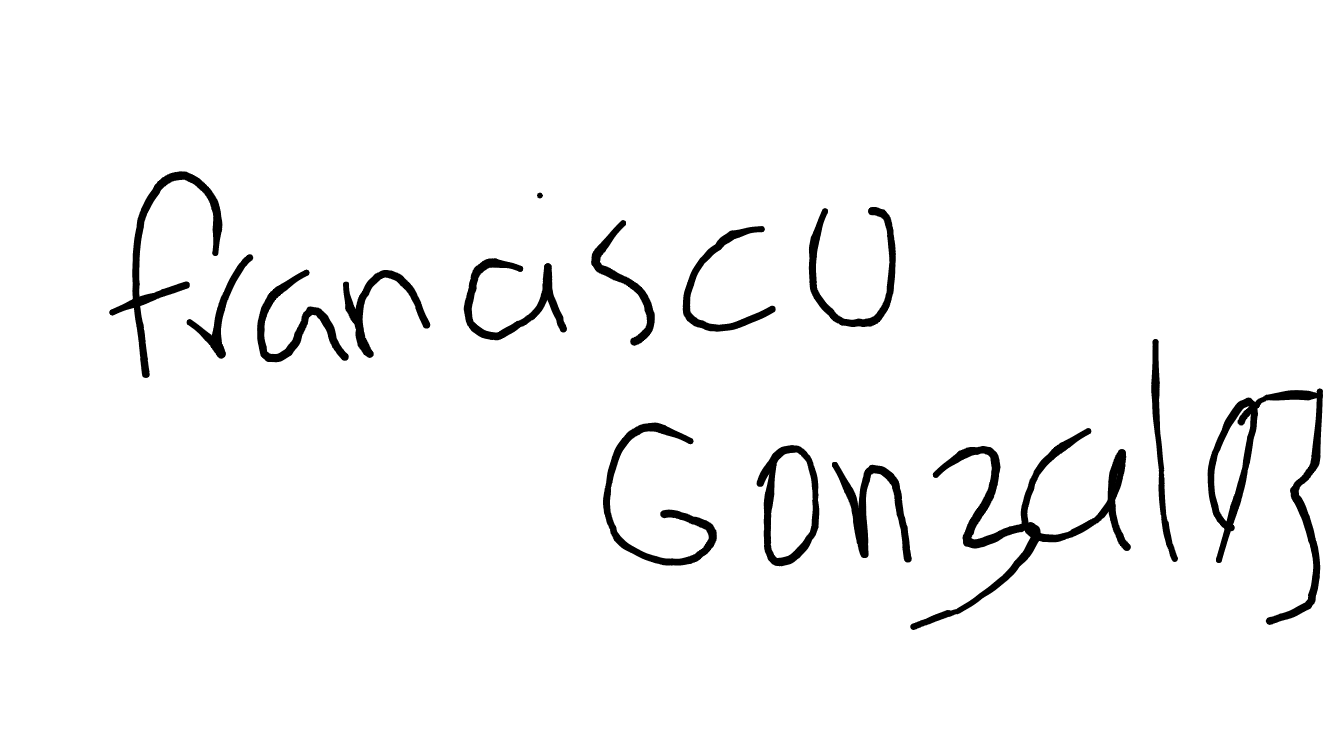 francisco
Gonzalez